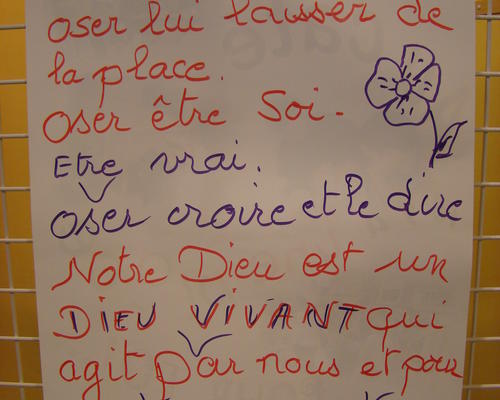 oser lui laisser de
la place.
Oser être Soi.
Etre vrai.
Oser croire et le dire
Notre Dieu est un
DIEU VIVANT qui
agit par nous et pour